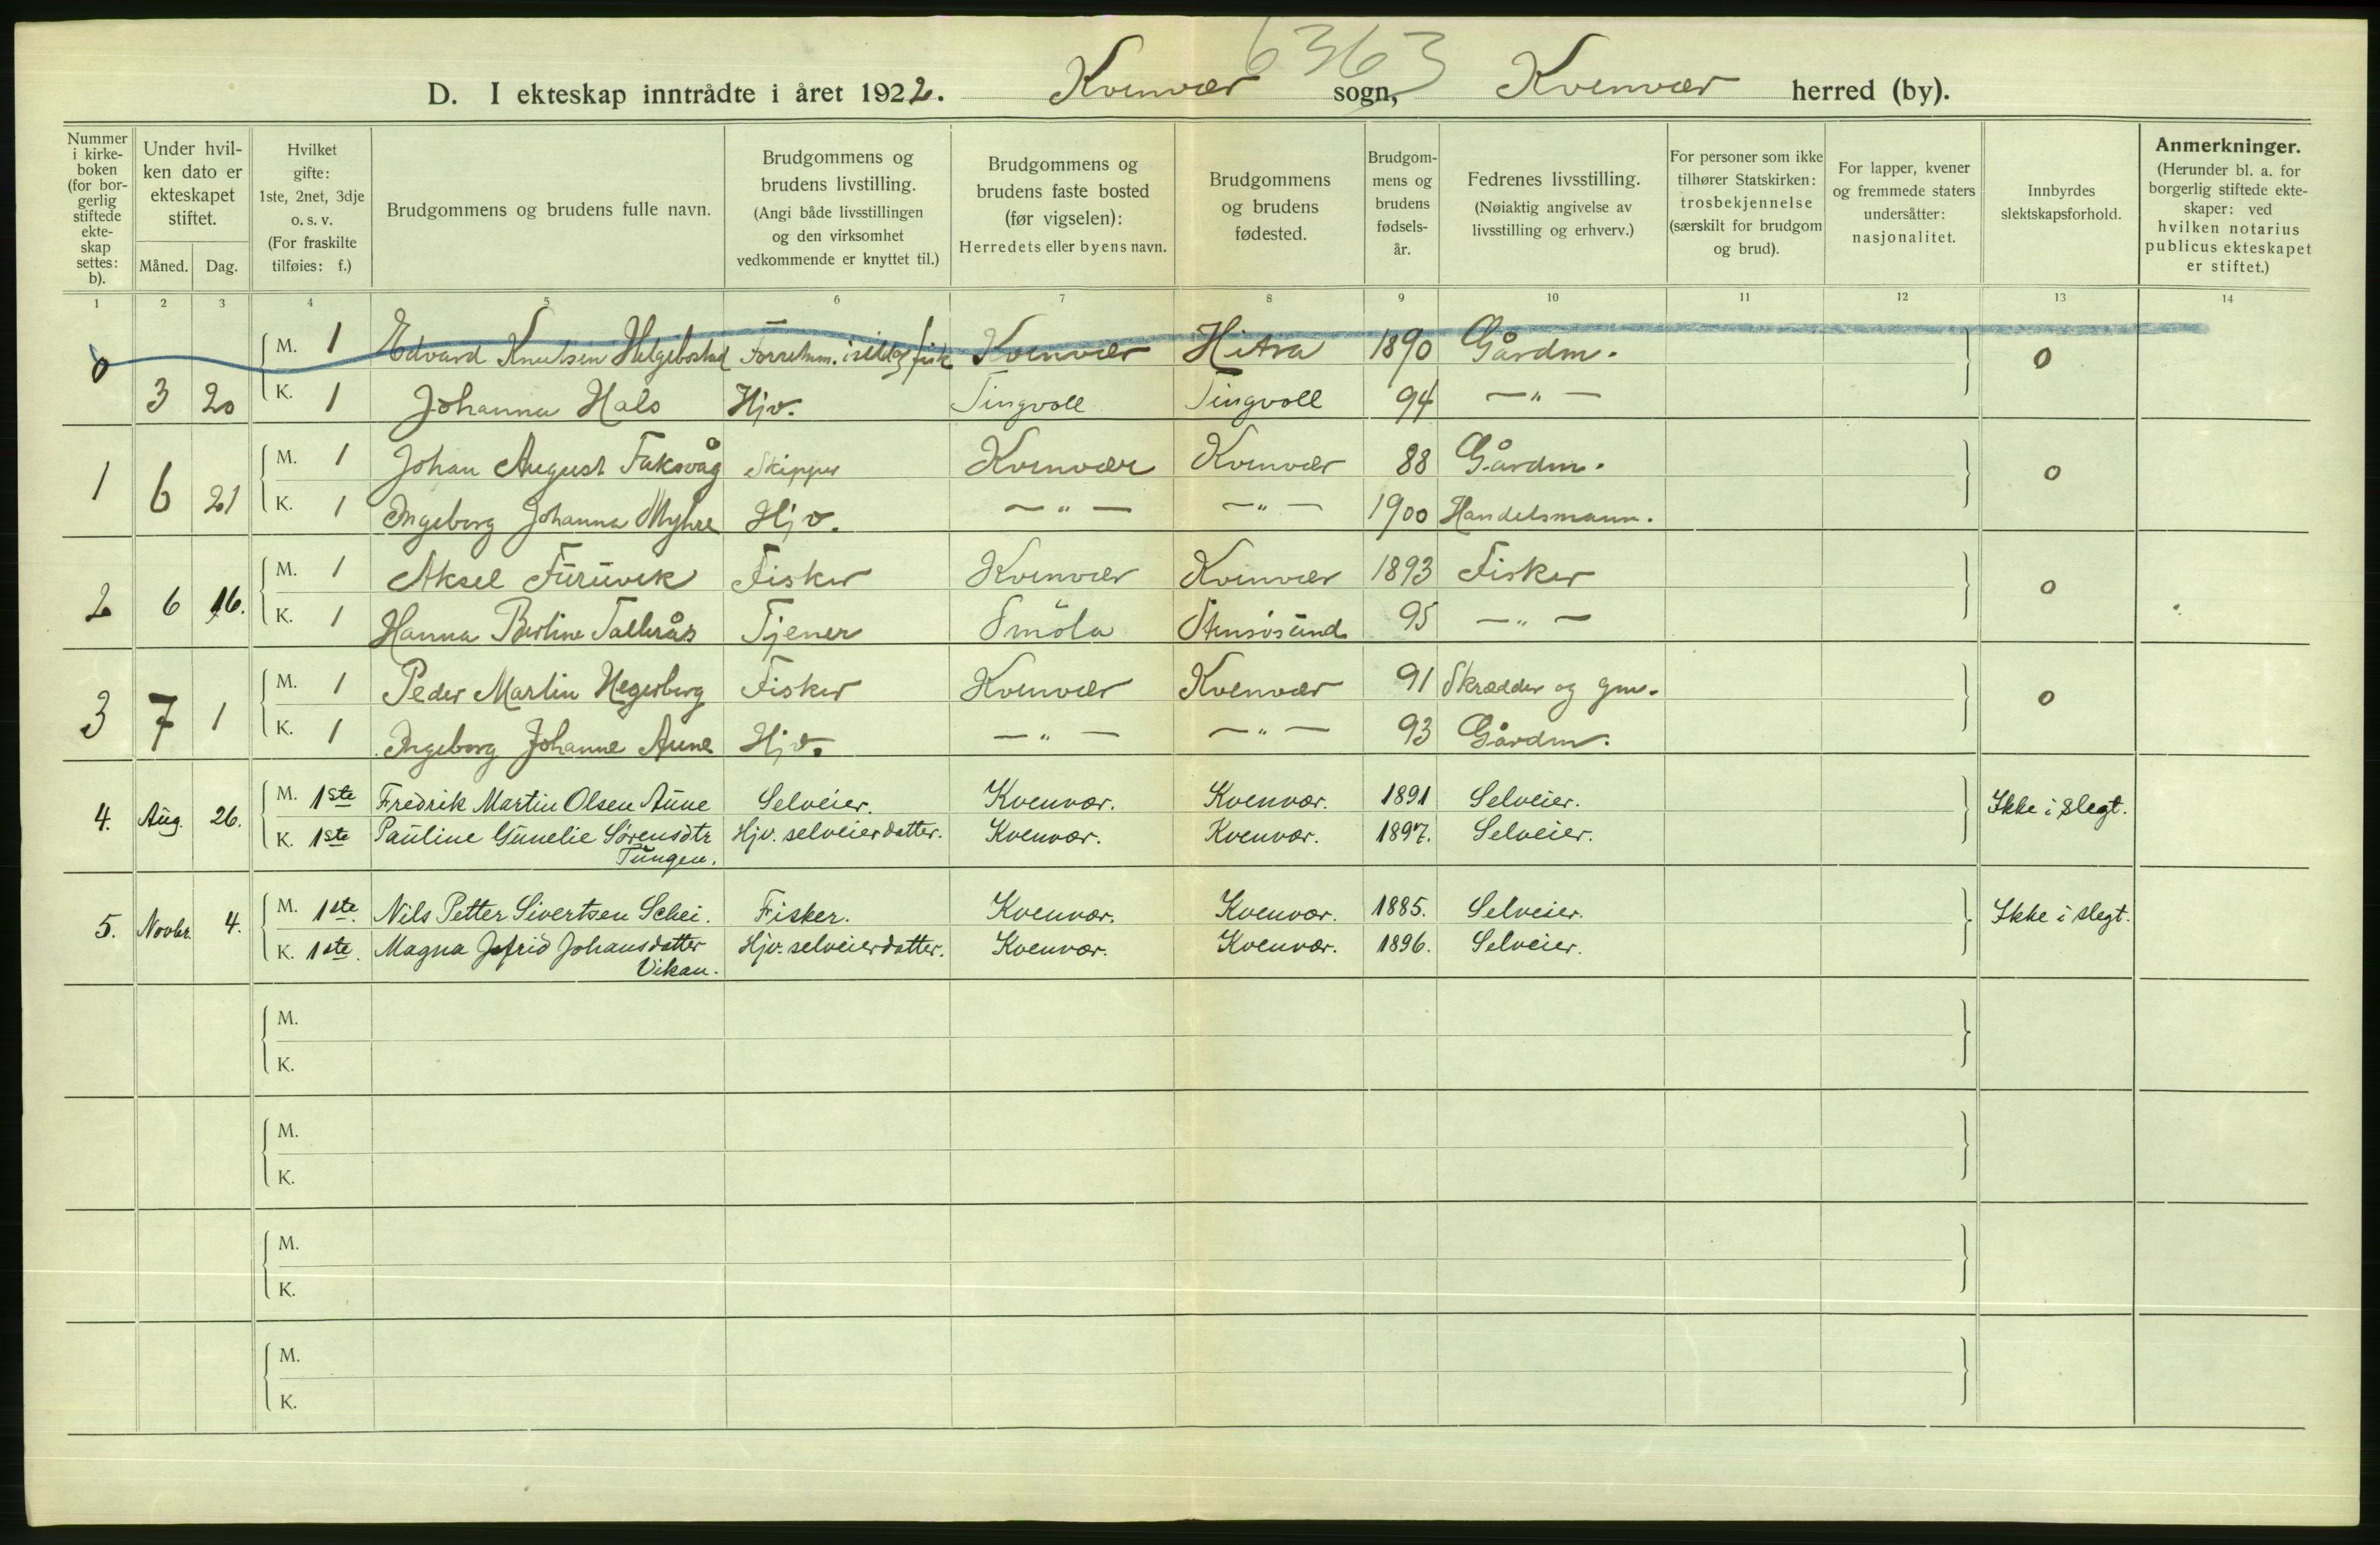 6363
D. I ekteskap inntrådte i året 1922. Kvenvær sogn, Kvenvær herred (by).
Nummer i kirke-boken (for bor-gerlig stiftede ekte-skap settes: b).
Under hvil-ken dato er ekteskapet stiftet.
Måned. Dag.
Hvilket gifte: 1ste, 2net, 3dje o. s. v. (For fraskilte tilføies: f.)
Brudgommens og brudens fulle navn.
Brudgommens og brudens livstilling. (Angi både livsstillingen og den virksomhet vedkommende er knyttet til.)
Brudgommens og brudens faste bosted (før vigselen): Herredets eller byens navn.
Brudgommens og brudens fødested.
Brudgom-mens og brudens fødsels-år.
Fedrenes livsstilling. (Nøiaktig angivelse av livsstilling og erhverv.)
For personer som ikke tilhører Statskirken: trosbekjennelse (særskilt for brudgom og brud).
For lapper, kvener og fremmede staters undersåtter: nasjonalitet.
Innbyrdes slektskapsforhold.
Anmerkninger. (Herunder bl. a. for borgerlig stiftede ekte-skaper: ved hvilken notarius publicus ekteskapet er stiftet.)
1 2 3 4 5 6 7 8 9 10 11 12 13 14
0 M. 1 Edvard Knutsen Helgebostad Forretnm. i sild og fisk Kvenvær Hitra 1890 Gårdm. 0
3 20 K. 1 Johanna Hals Hjv. Tingvoll Tingvoll 94 — " —
1 6 21 M. 1 Johan August Faksvåg Skipper Kvenvær Kvenvær 88 Gårdm. 0
K. 1 Ingeborg Johanna Myhre Hjv. — " — — " — 1900 Handelsmann.
2 6 16. M. 1 Aksel Furuvik Fisker Kvenvær Kvenvær 1893 Fisker 0
K. 1 Hanna Berline Tallerås Tjener Smöla Stensösund 95 — " —
3 7 1 M. 1 Peder Martin Hegerberg Fisker Kvenvær Kvenvær 91 Skrædder og gm. 0
K. 1 Ingeborg Johanne Aune Hjv. — " — — " — 93 Gårdm.
4. Aug. 26. M. 1ste Fredrik Martin Olsen Aune Selveier. Kvenvær. Kvenvær. 1891 Selveier. Ikke i slegt.
K. 1ste Pauline Gunelie Sørensdtr Hjv. selveierdatter. Kvenvær. Kvenvær. 1897. Selveier.
Tungen.
5. Novbr. 4. M. 1ste. Nils Petter Sivertsen Schei. Fisker. Kvenvær. Kvenvær. 1885. Selveier. Ikke i slegt.
K. 1ste. Magna Jofrid Johansdatter Hjv. selveierdatter. Kvenvær. Kvenvær. 1896. Selveier.
Vikan.
M.
K.
M.
K.
M.
K.
M.
K.